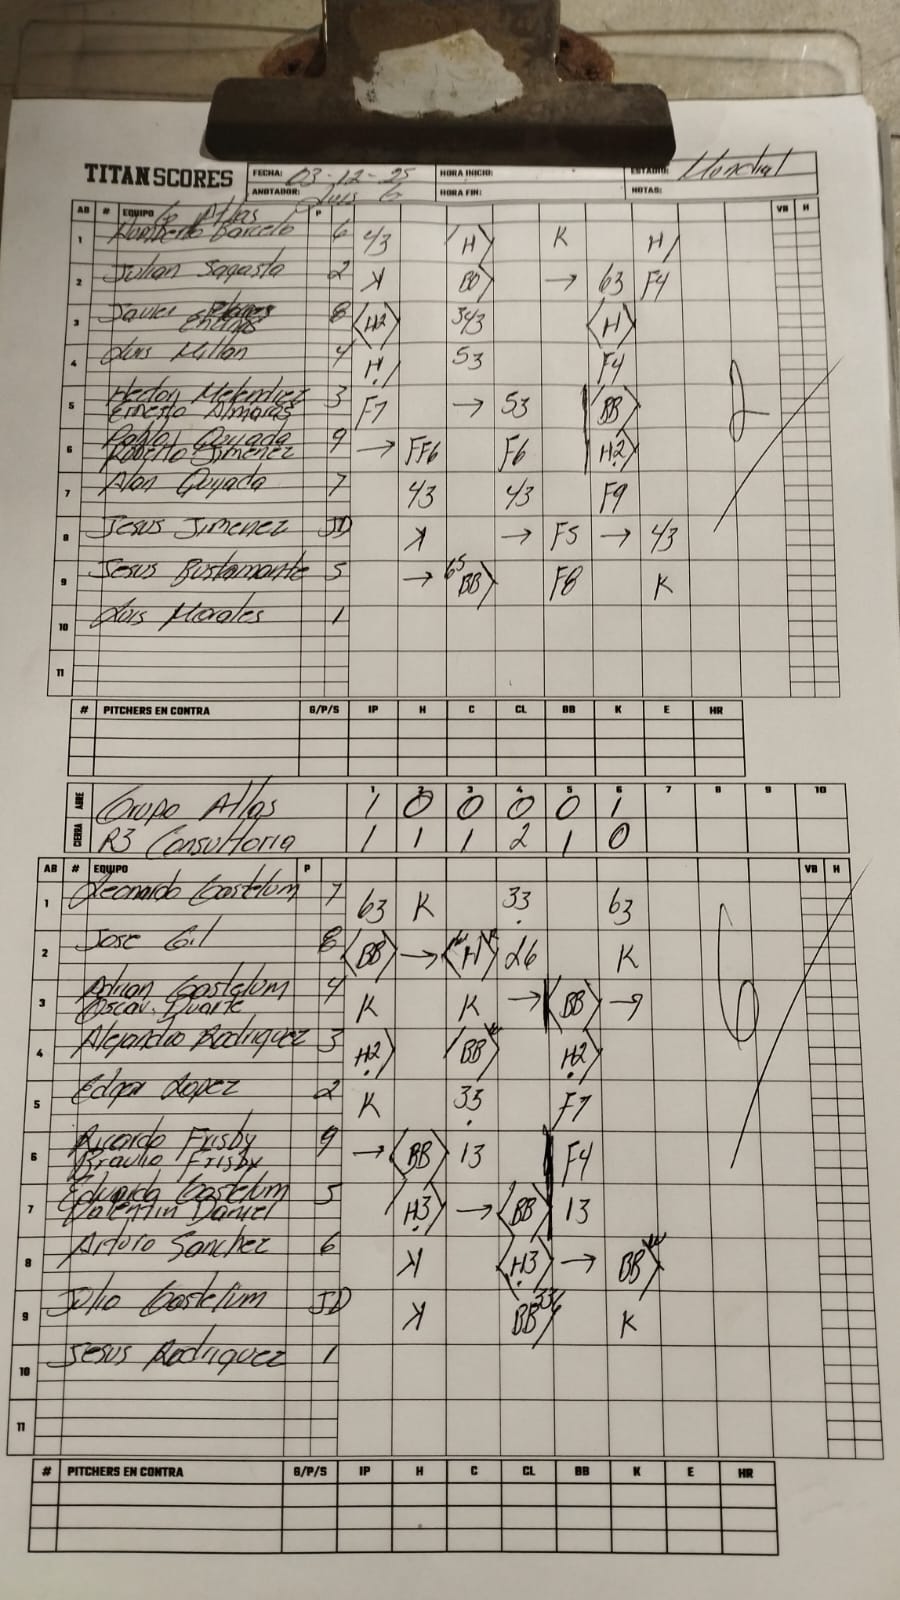 TITAN SCORES
FECHA: 03-12-25 HORA INICIO: ESTADIO: Mundial
ANOTADOR: Luis G HORA FIN: NOTAS:
AB # EQUIPO G Atlas P VB H
1 Humberto Barcelo 6 43 H K H
2 Julian Sagasta 2 K BB → 63 F4
3 Javier Encinas 8 H2 343 H
4 Luis Millan 4 H 53 F4
5 Hector Melendrez 3 F7 → 53 BB
Ernesto Almaras
6 Pablo Quijada 9 → FF6 F6 H2
Roberto Jimenez
7 Alan Quijada 7 43 43 F9
8 Jesus Jimenez JD K → F5 → 43
9 Jesus Bustamante 5 → 65 BB F8 K
10 Luis Morales 1
11
2
# PITCHERS EN CONTRA G/P/S IP H C CL BB K E HR
1 2 3 4 5 6 7 8 9 10
ABRE Grupo Atlas 1 0 0 0 0 1
CIERRA R3 Consultoria 1 1 1 2 1 0
AB # EQUIPO P VB H
1 Leonardo Gastelum 7 63 K 33 63
2 Jose Gil 8 BB → H 26 K
3 Adrian Gastelum 4 K K → BB →
Oscar Duarte
4 Alejandro Rodriguez 3 H2 BB H2
5 Edgar Lopez 2 K 33 F7
6 Ricardo Frisby 9 → BB 13 F4
Braulio Frisby
7 Eduardo Gastelum 5 H3 → BB 13
Valentin Daniel
8 Arturo Sanchez 6 K H3 → BB
9 Julio Gastelum JD K BB K
10 Jesus Rodriguez 1
11
6
# PITCHERS EN CONTRA G/P/S IP H C CL BB K E HR